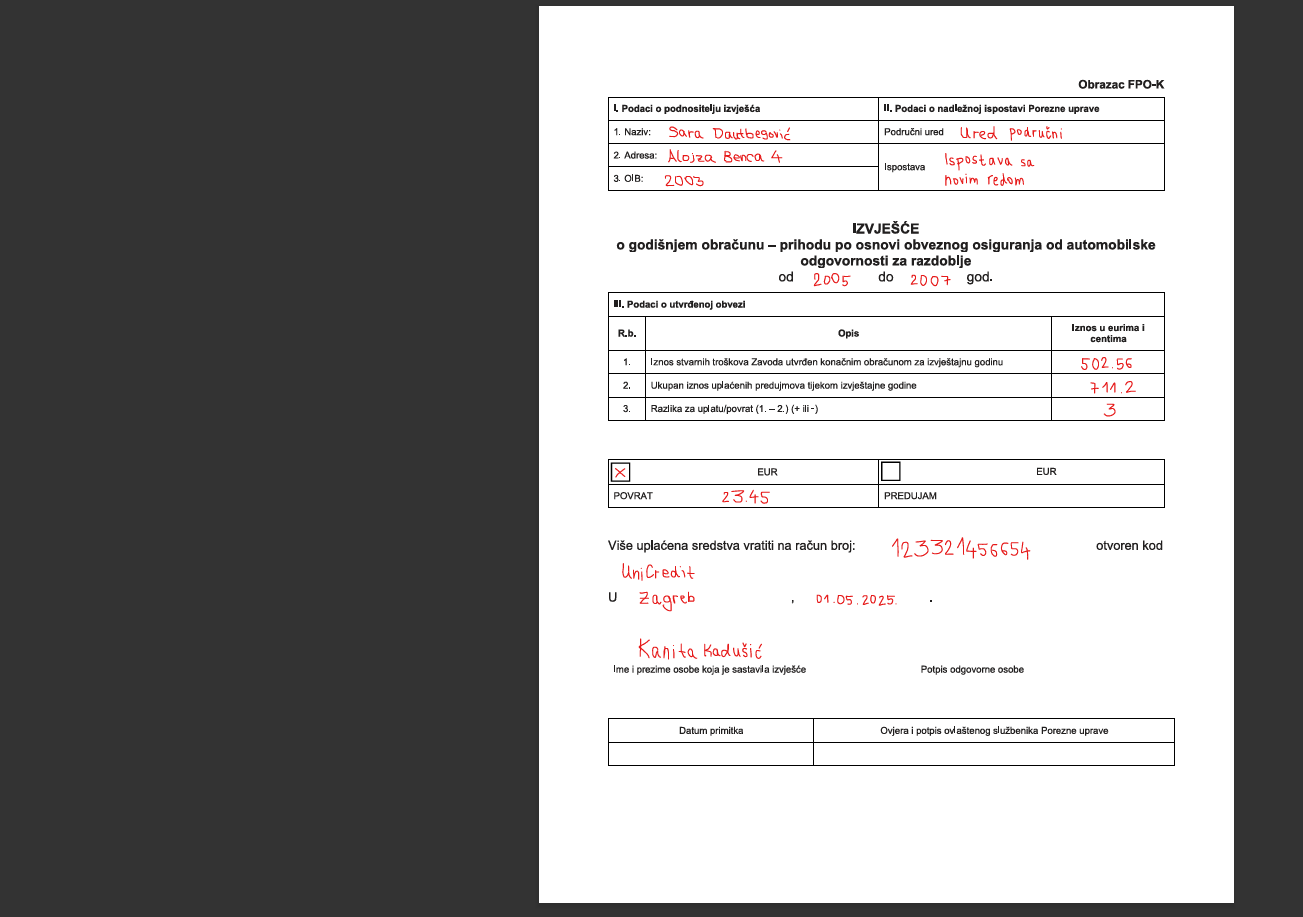 Obrazac FPO-K
I. Podaci o podnositelju izvješća
II. Podaci o nadležnoj ispostavi Porezne uprave
1. Naziv: Sara Dautbegović
Područni ured Ured područni
2. Adresa: Alojza Benca 4
Ispostava Ispostava sa
novim redom
3. OIB: 2003
IZVJEŠĆE
o godišnjem obračunu – prihodu po osnovi obveznog osiguranja od automobilske
odgovornosti za razdoblje
od 2005 do 2007 god.
III. Podaci o utvrđenoj obvezi
R.b. Opis Iznos u eurima i
centima
1. Iznos stvarnih troškova Zavoda utvrđen konačnim obračunom za izvještajnu godinu 502.56
2. Ukupan iznos uplaćenih predujmova tijekom izvještajne godine 711.2
3. Razlika za uplatu/povrat (1. – 2.) (+ ili -) 3
X EUR EUR
POVRAT 23.45 PREDUJAM
Više uplaćena sredstva vratiti na račun broj: 123321456654 otvoren kod
UniCredit
U Zagreb , 01.05.2025. .
Kanita Kadušić
Ime i prezime osobe koja je sastavila izvješće Potpis odgovorne osobe
Datum primitka Ovjera i potpis ovlaštenog službenika Porezne uprave